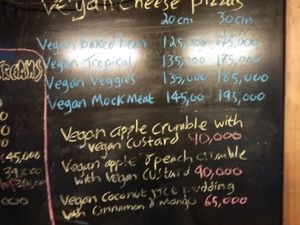 Vegan cheese pizzas
20cm 30cm
Vegan baked bean 125,000 175,000
Vegan Tropical 135,000 185,000
Vegan Veggies 135,000 185,000
Vegan Mock Meat 145,00 195,000
Vegan apple crumble with
vegan custard 90,000
Vegan apple & peach crumble
with Vegan custard 90,000
Vegan Coconut rice pudding
with Cinnamon & Mango 65,000
CREAMS
45,000